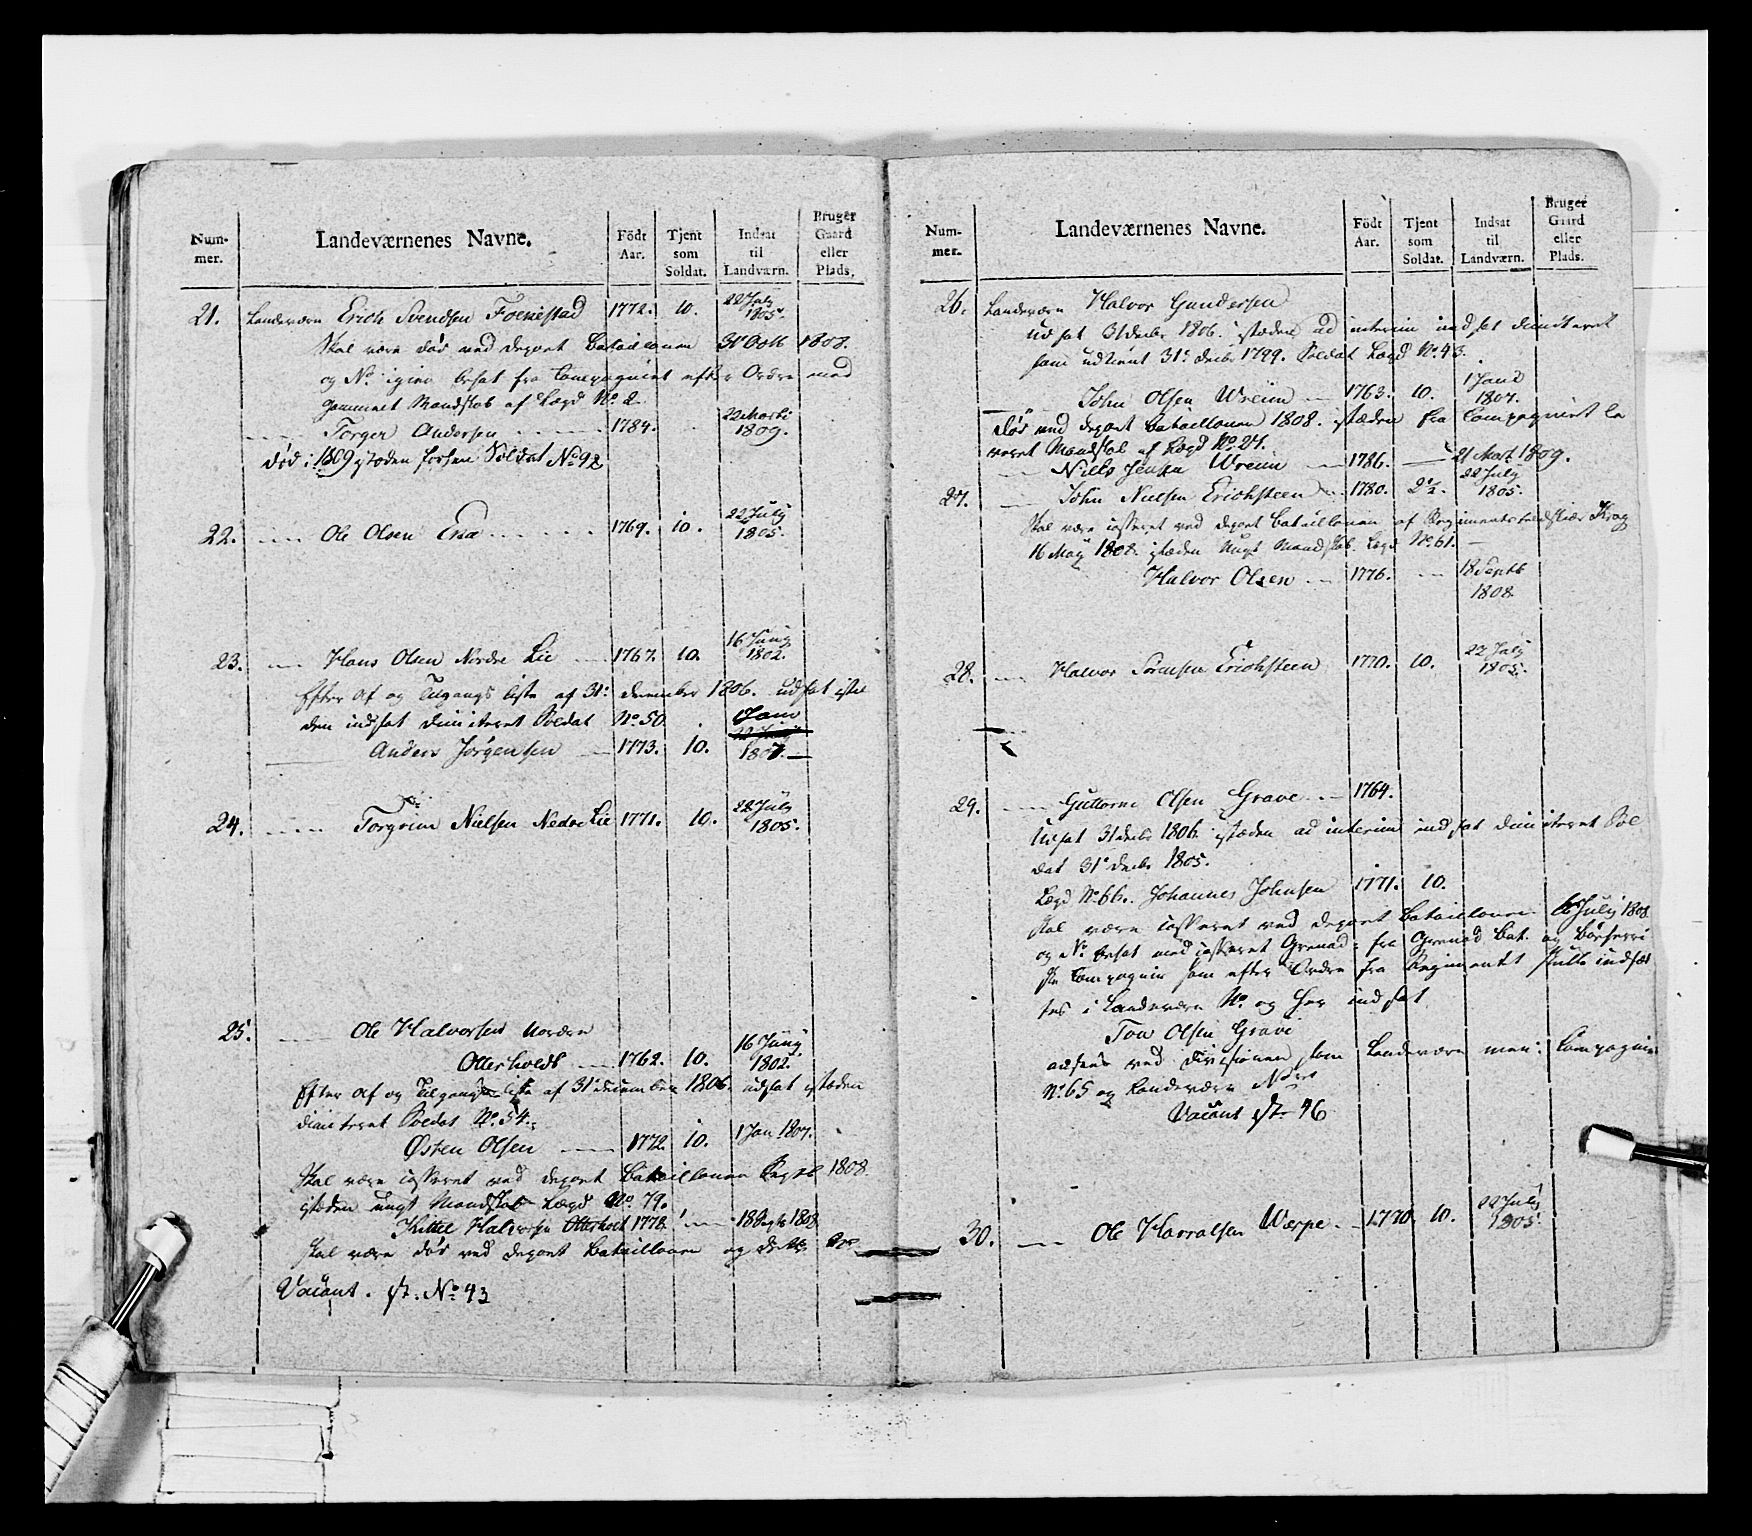 Num-
mer.
Landeværnenes Navne.
Födt
Aar.
Tjent
som
Soldat.
Indsat
til
Landværn.
Bruger
Gaard
eller
Plads.
21. Landeværn Erich Svendsen Foenestad 1772. 10. 22 July 1805.
Skal være død ved depoet Batailonen 31 Octb 1808.
og No igien besat fra Compagniet efter Ordre med
gammelt Mandskab af Lægd No 2
Torger Andersen 1784. 22 Martz 1809.
død i 1809 istæden forhen Soldat No 92
22. Ole Olsen Enæ 1769. 10. 22 July 1805.
23. Hans Olsen Nordre Lie 1767. 10. 16 Juny 1802.
Efter Af og Tilgangs liste af 31te december 1806. udsat istæ
den indsat dimiteret Soldat No. 50.
Anders Jörgensen 1773. 10. 1 Janv 1807.
24. Torgrim Nielsen Nedre Lie 1771. 10. 22 July 1805.
25. Ole Halvorsen Nordre
Otterholdt 1762. 10. 16 Juny 1802.
Efter Af og Tilgangs liste af 31te december 1806. udsat istæden
dimiteret Soldat No. 54.
Østen Olsen 1772 10. 1 Jan 1807.
Skal være casseret ved depoet Bataillonen Septb 1808
istæden ungt Mandskab Lægd No. 79.
Kittel Halvorsen Otterholt 1778. 18 Septb 1808.
skal være død ved depoet Bataillonen og
Vacant. ft. No. 43
Num-
mer.
Landeværnenes Navne.
Födt
Aar.
Tjent
som
Soldat.
Indsat
til
Landværn.
Bruger
Gaard
eller
Plads.
26. Landeværn Halvor Gundersen
udsat 31 decbr 1806. istæden ad interim indsat dimiteret
som udtient 31te decbr 1799. Soldat Lægd No. 43.
John Olsen Wreim 1763. 10. 1 Janv 1807.
død ved depoet Bataillonen 1808. istæden fra Compagniet le
veret Mandskab af Lægd No. 27.
Niels Jensen Wreim 1786. 21 Mart 1809.
27. John Nielsen Erichsteen 1780. 2½. 22 July 1805.
Skal være casseret ved depoet Bataillonen af Regimentsfeldskiær Krag
16 May 1808. istæden Ungt Mandskab. Lægd No. 61.
Halvor Olsen 1776. 18 Septb 1808.
28. Halvor Sörensen Erichsteen 1770. 10. 22 July 1805.
29. Guttorm Olsen Grave 1764.
Udsat 31 decbr 1806. istæden ad interim indsat dimiteret Sol
dat 31te decbr 1805.
Lægd No. 66. Johannes Johnsen 1771. 10.
skal være casseret ved depoet Bataillonen 6 July 1808
og No besat med casseret Grenad: fra Grenad Bat. og
Compagnie som efter Ordre fra Regimentet skulle indsæt
tes i Landeværn No. og her indsat.
Tov Olsen Grave
ansees ved Divisionen som Landeværn men: Compagnie
No. 65 og Landeværn
Vacant ft. 46
30. Ole Harralsen Wærpe 1770 10. 22 July 1805.